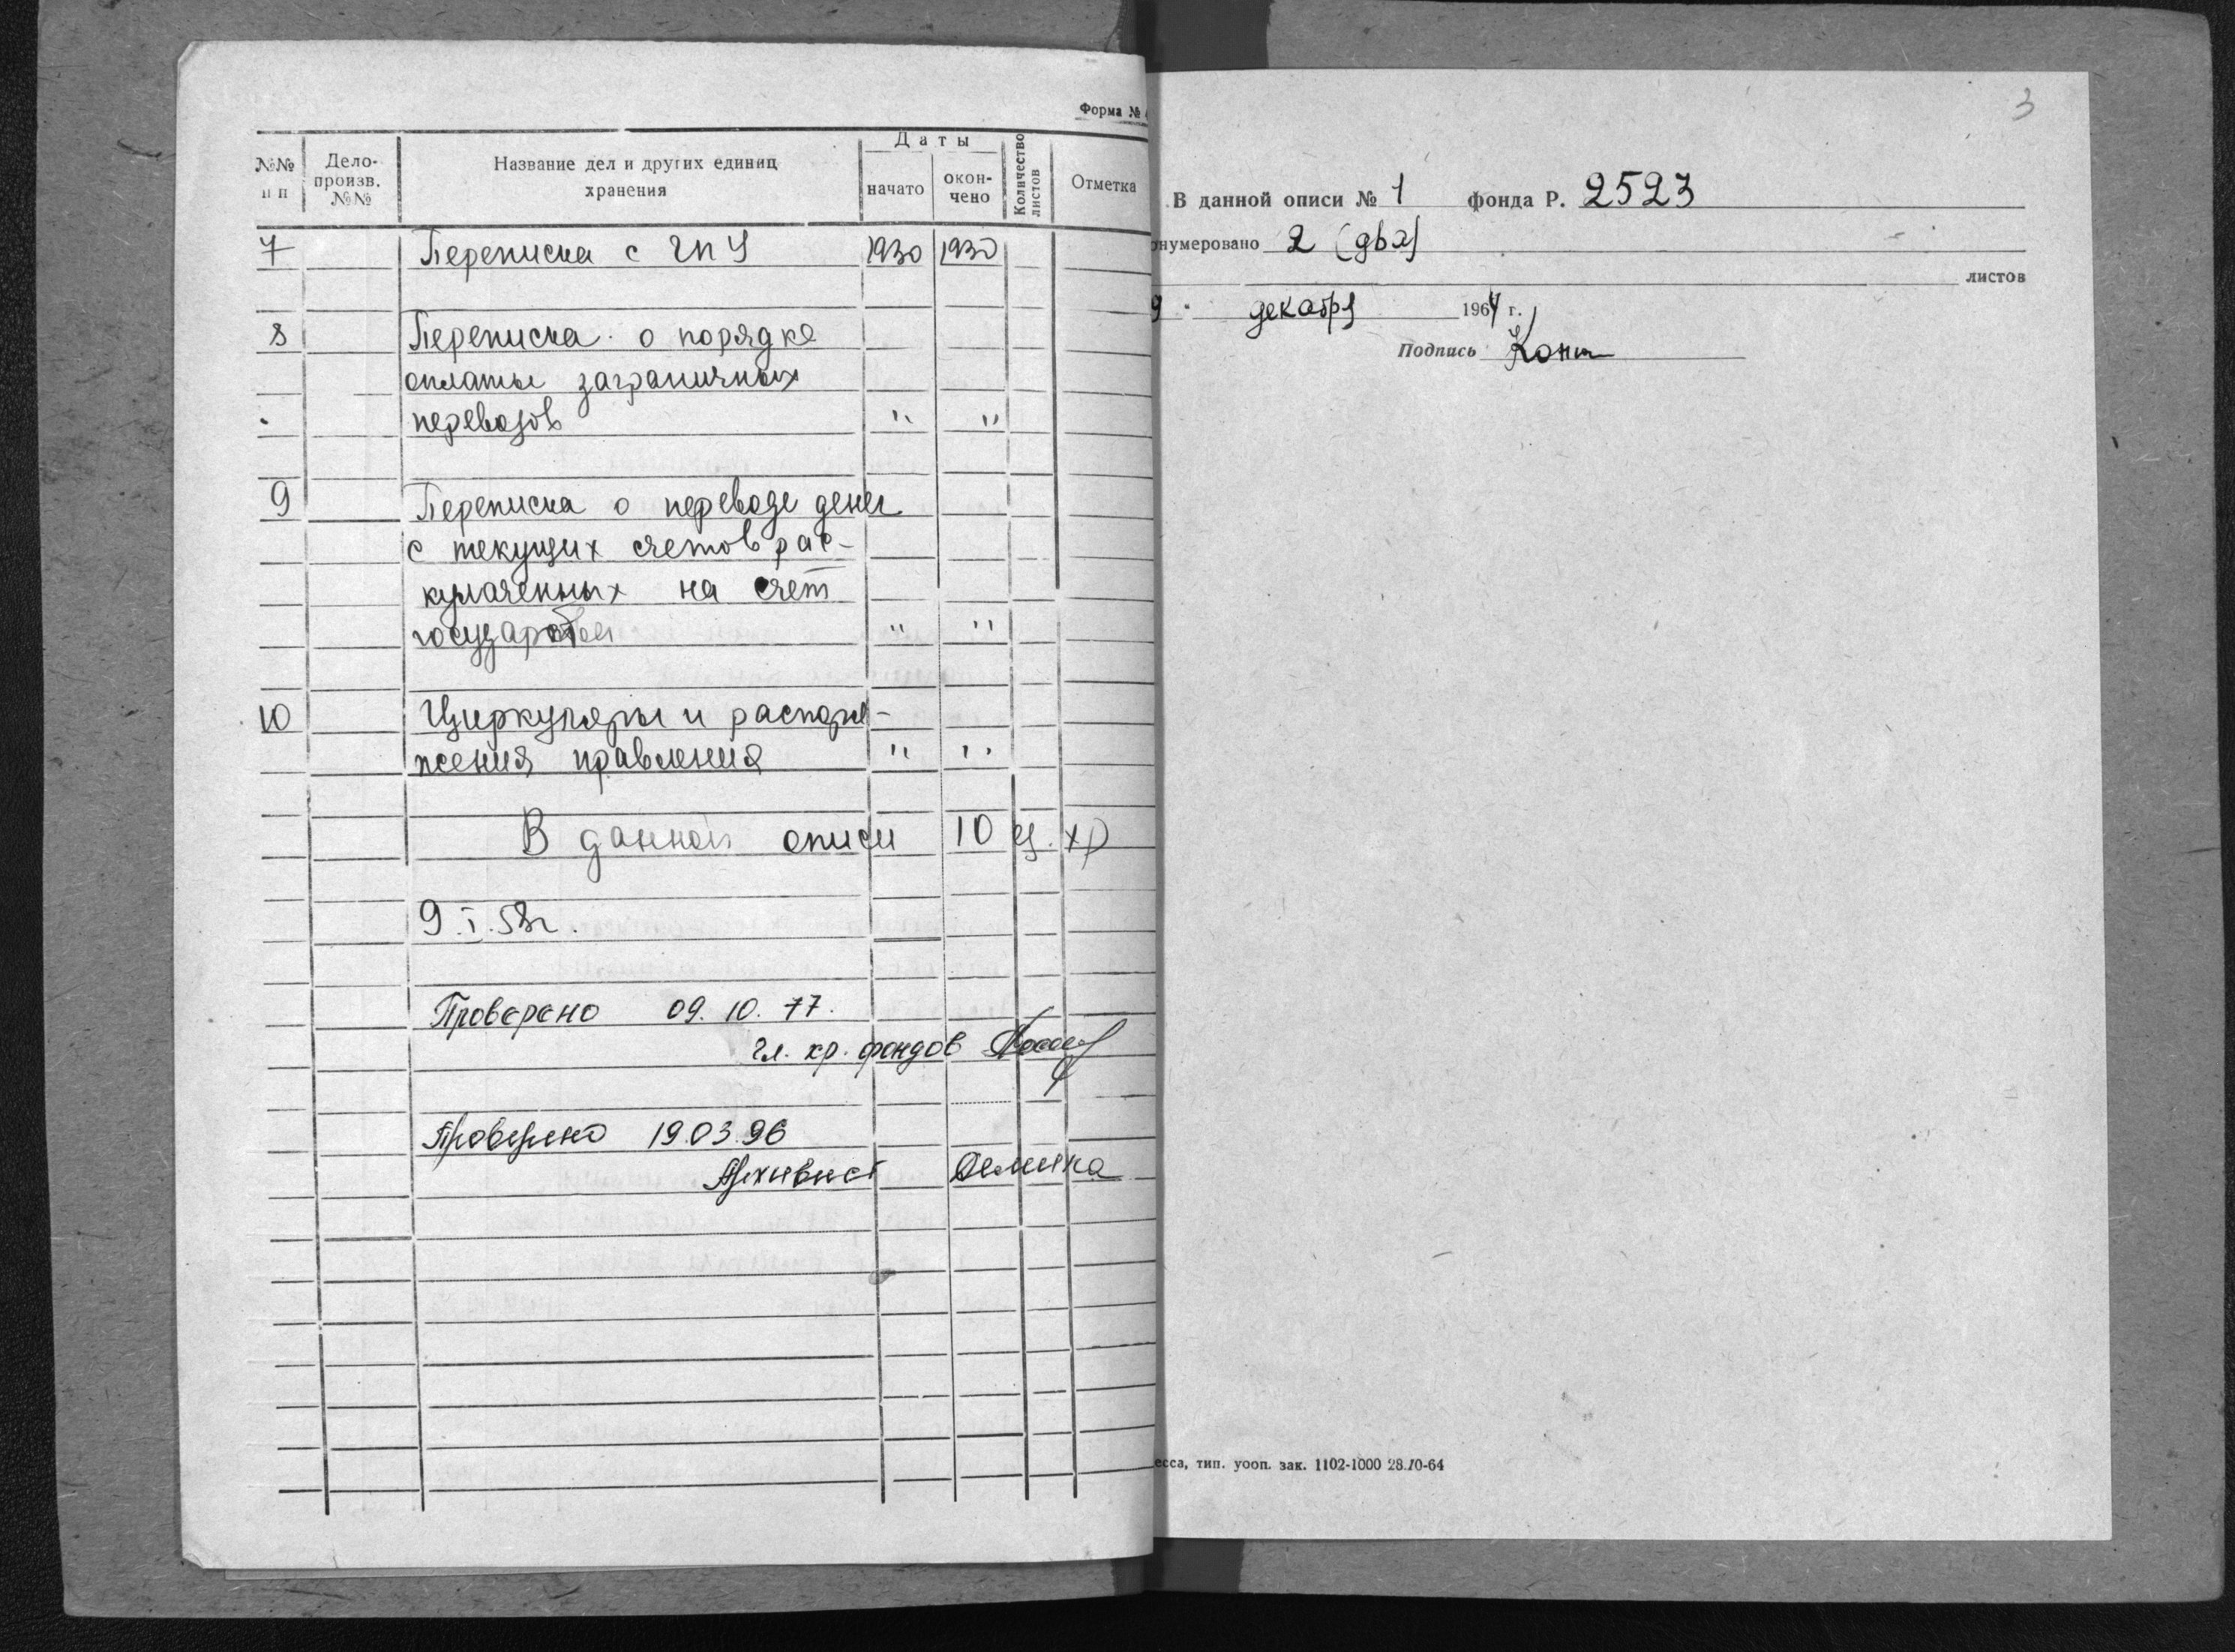 Форма №
№№ п п
Дело-произв. №№
Название дел и других единиц хранения
Даты
начато
окон-чено
Количество листов
Отметка
7 Переписка с ГПУ 1930 1930
8 Переписка о порядке
оплаты заграничных
переводов " "
9 Переписка о переводе денег
с текущих счетов рас-
кулаченных на счет
государства " "
10 Циркуляры и распоря-
жения правления " "
В данной описи 10 ед. хр
9.I.58г.
Проверено 09.10.77.
Гл. хр. фондов
Проверено 19.03.96
Архивист
3
В данной описи № 1 фонда Р. 2523
онумеровано 2 (два)
листов
9 " декабря 1964 г.
Подпись
есса, тип. уооп. зак. 1102-1000 28.10-64